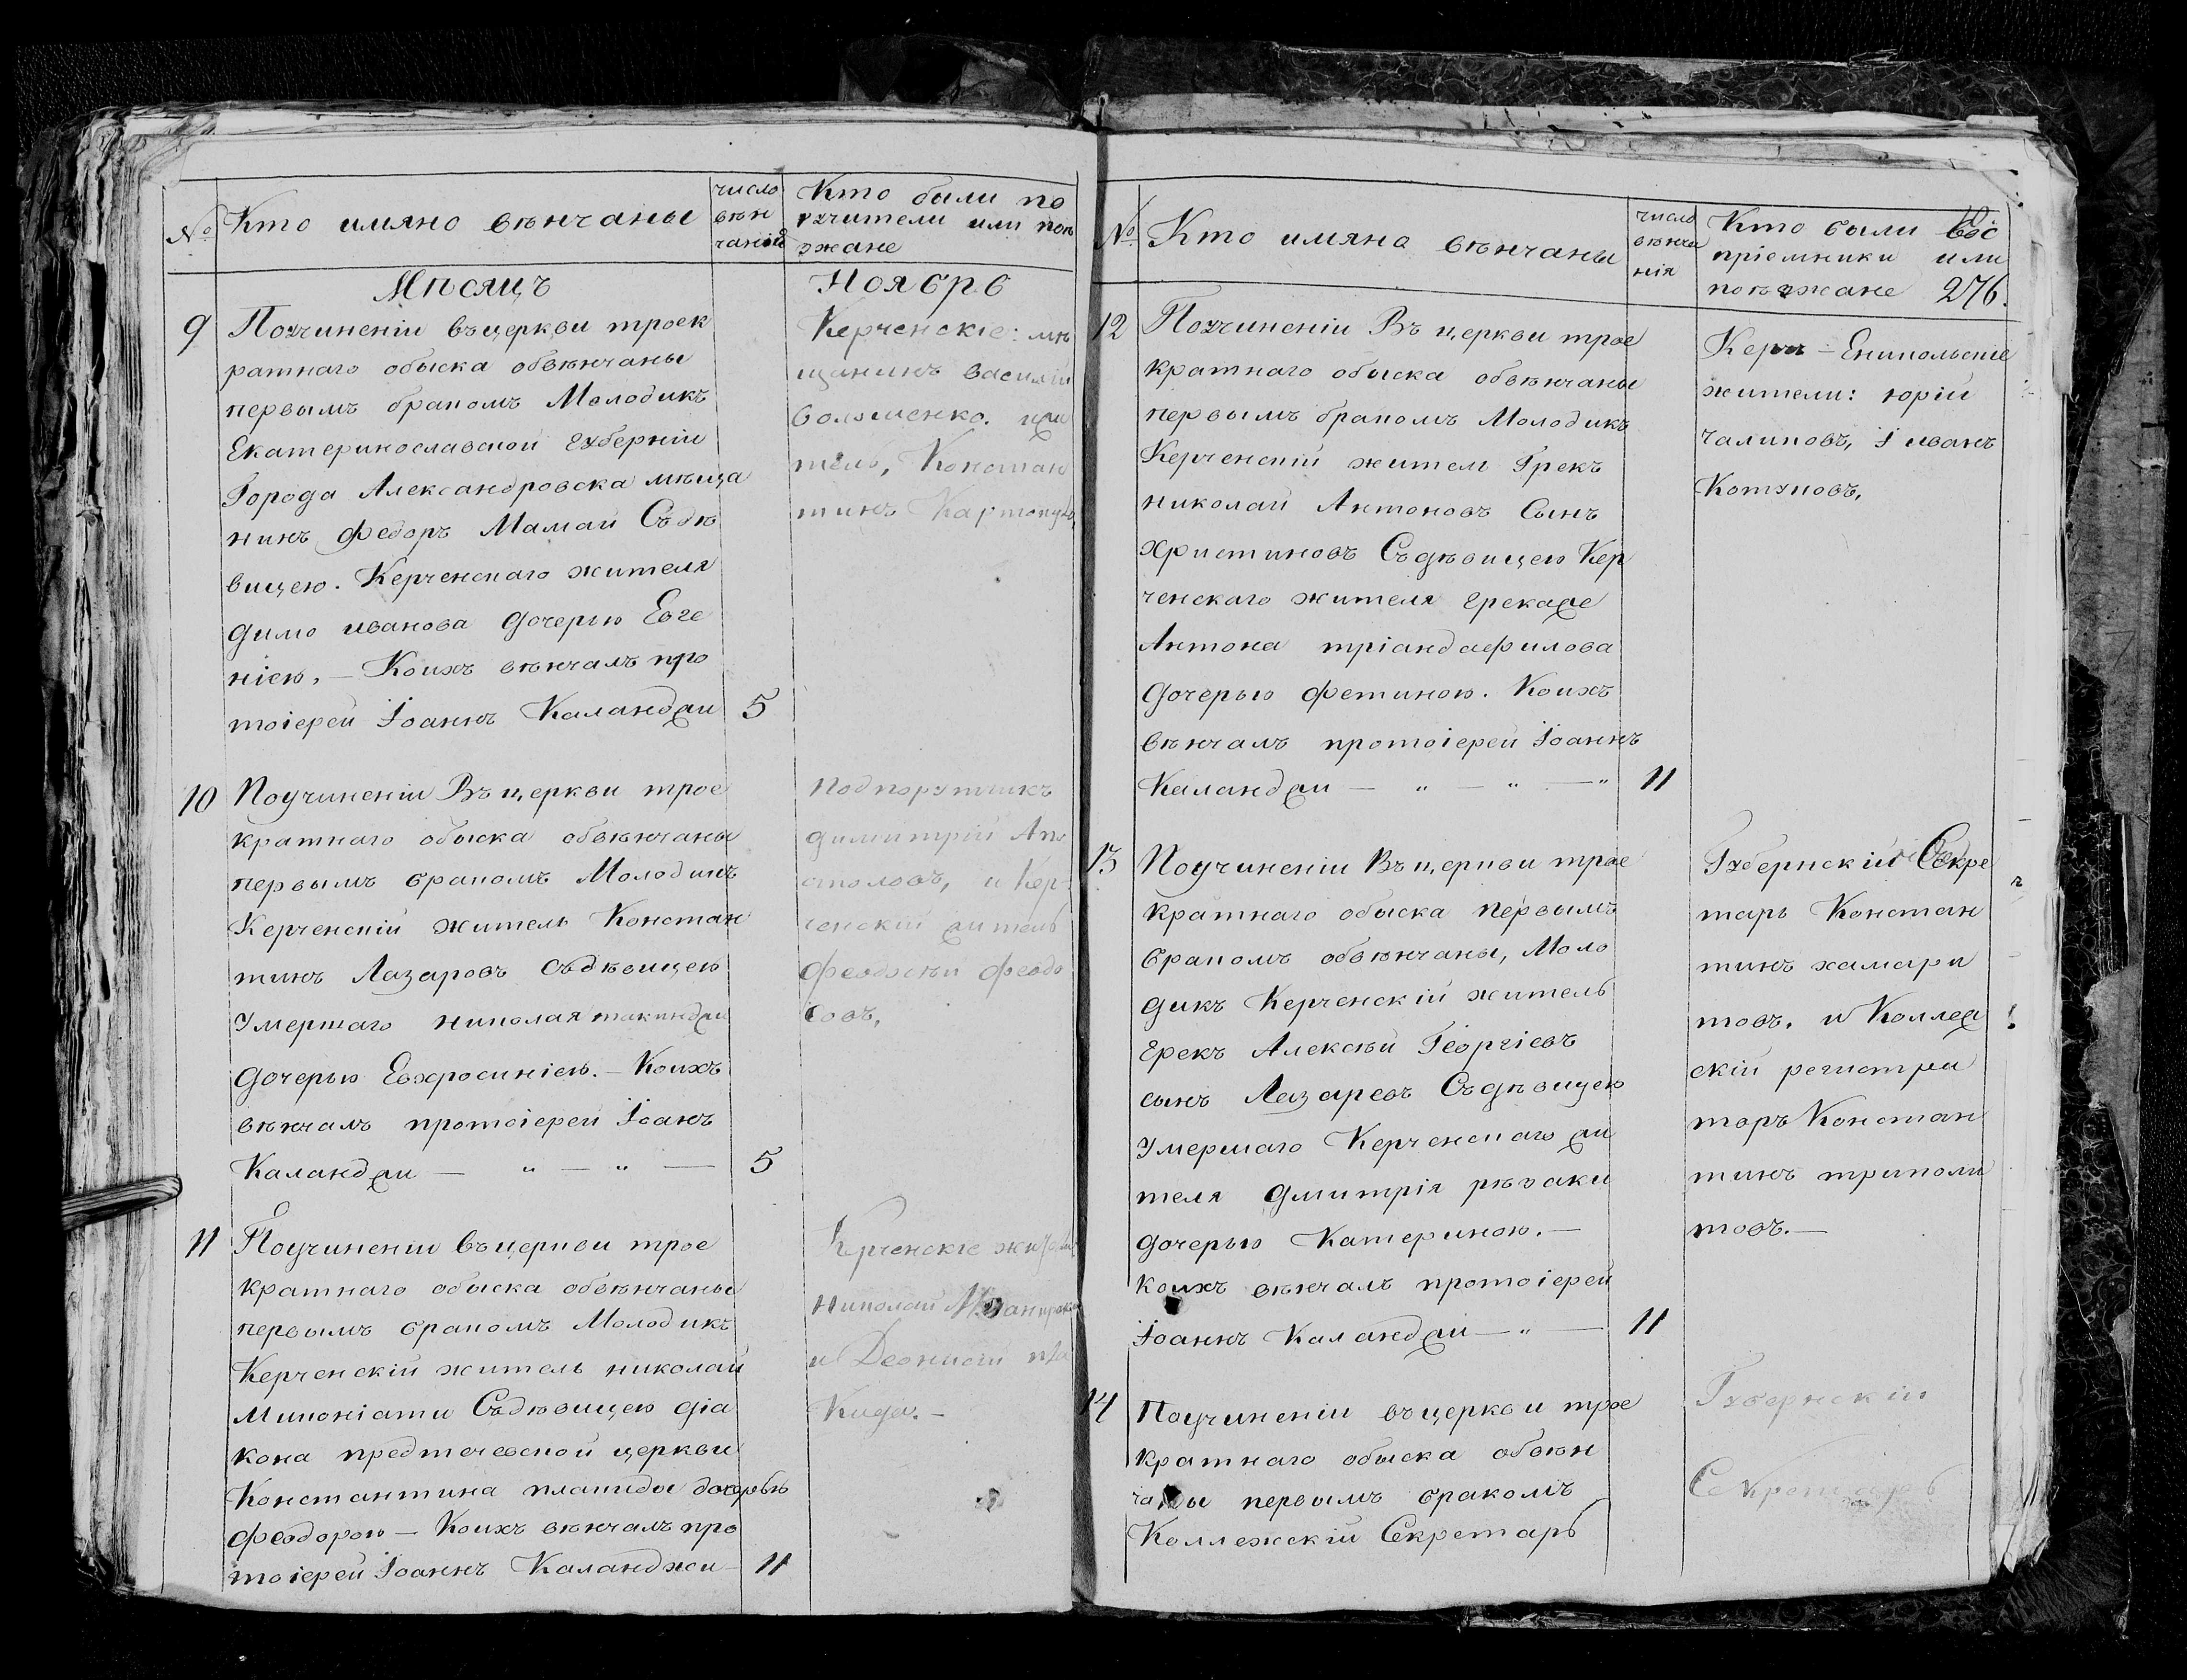 №
Кто имяно вѣнчаны
число
вѣн
чаній
Кто были по
ручители или поѣ
зжане
Мѣсяцъ
Ноябрь
9
Поучиненіи въцеркви троек
ратнаго обыска обвѣнчаны
первымъ бракомъ Молодикъ
Екатеринославской губерніи
Города Александровска мѣща
нинъ Федоръ Мамай Съдѣ
вицею. Керченскаго жителя
Димо иванова дочерью Евге
ніею, — Коихъ вѣнчалъ про
тоіерей Іоаннъ Каланджи
5
Керченскіе: мѣ
щанинъ василій
жи
тель, Констан
тинъ
10
Поучиненіи Въ церкви трое
кратнаго обыска обвѣнчаны
первымъ бракомъ Молодикъ
Керченскій житель Констан
тинъ Лазаровъ Съдѣвицею
Умершаго николая
дочерью Евхросиніею. — Коихъ
вѣнчалъ протоіерей Іоанъ
Каланджи — „ — „ —
5
Подпорутчикъ
димитрій Апо
столовъ, и Кер
ченскій житель
Феодосѣй Феодо
совъ,
11
Поучиненіи въцеркви трое
кратнаго обыска обвѣнчаны
первымъ бракомъ Молодикъ
Керченскій житель николай
Миконіати Съдѣвицею діа
кона предтечевской церкви
Константина плакиды дочерью
Феодорою — Коихъ вѣнчалъ про
тоіерей Іоаннъ Каланджи —
11
Керченскіе жители
николай
и Деонисій пла
Кида. —
№
Кто имяно вѣнчаны
число
вѣнча
нія
Кто были Вос
пріемники или
поѣзжане 276.
12
Поучиненіи Въ церкви трое
кратнаго обыска обвѣнчаны
первымъ бракомъ Молодикъ
Керченскій жители Грекъ
николай Антоновъ Сынъ
христиновъ Съдѣвицею Кер
ченскаго жителя грекаже
Антона тріандафилова
дочерью фетиною. Коихъ
вѣнчалъ протоіерей Іоаннъ
Каланджи — „ — „ — „
11
Керчь-Еникольскіе
жители: юрій
чаликовъ, і иванъ
Котуковъ,
13
Поучиненіи Въ церкви трое
кратнаго обыска первымъ
бракомъ обвѣнчаны, Моло
дикъ Керченскій житель
грекъ Алексѣй Георгіевъ
сынъ Лазаревъ Съдѣвицею
Умершаго Керченскаго жи
теля Дмитрія рѣваки
дочерью Катериною. —
коихъ вѣнчалъ протоіерей
Іоаннъ Каланджи — „ —
11
Губернскій Секре
тарь Констан
тинъ хамари
товъ. и Коллеж
скій регистра
торъ Констан
тинъ триполи
товъ. —
14
Поучиненіи въцеркви трое
кратнаго обыска обвѣн
чаны первымъ бракомъ
Коллежскій Секретарь
Губернскій
Секретарь